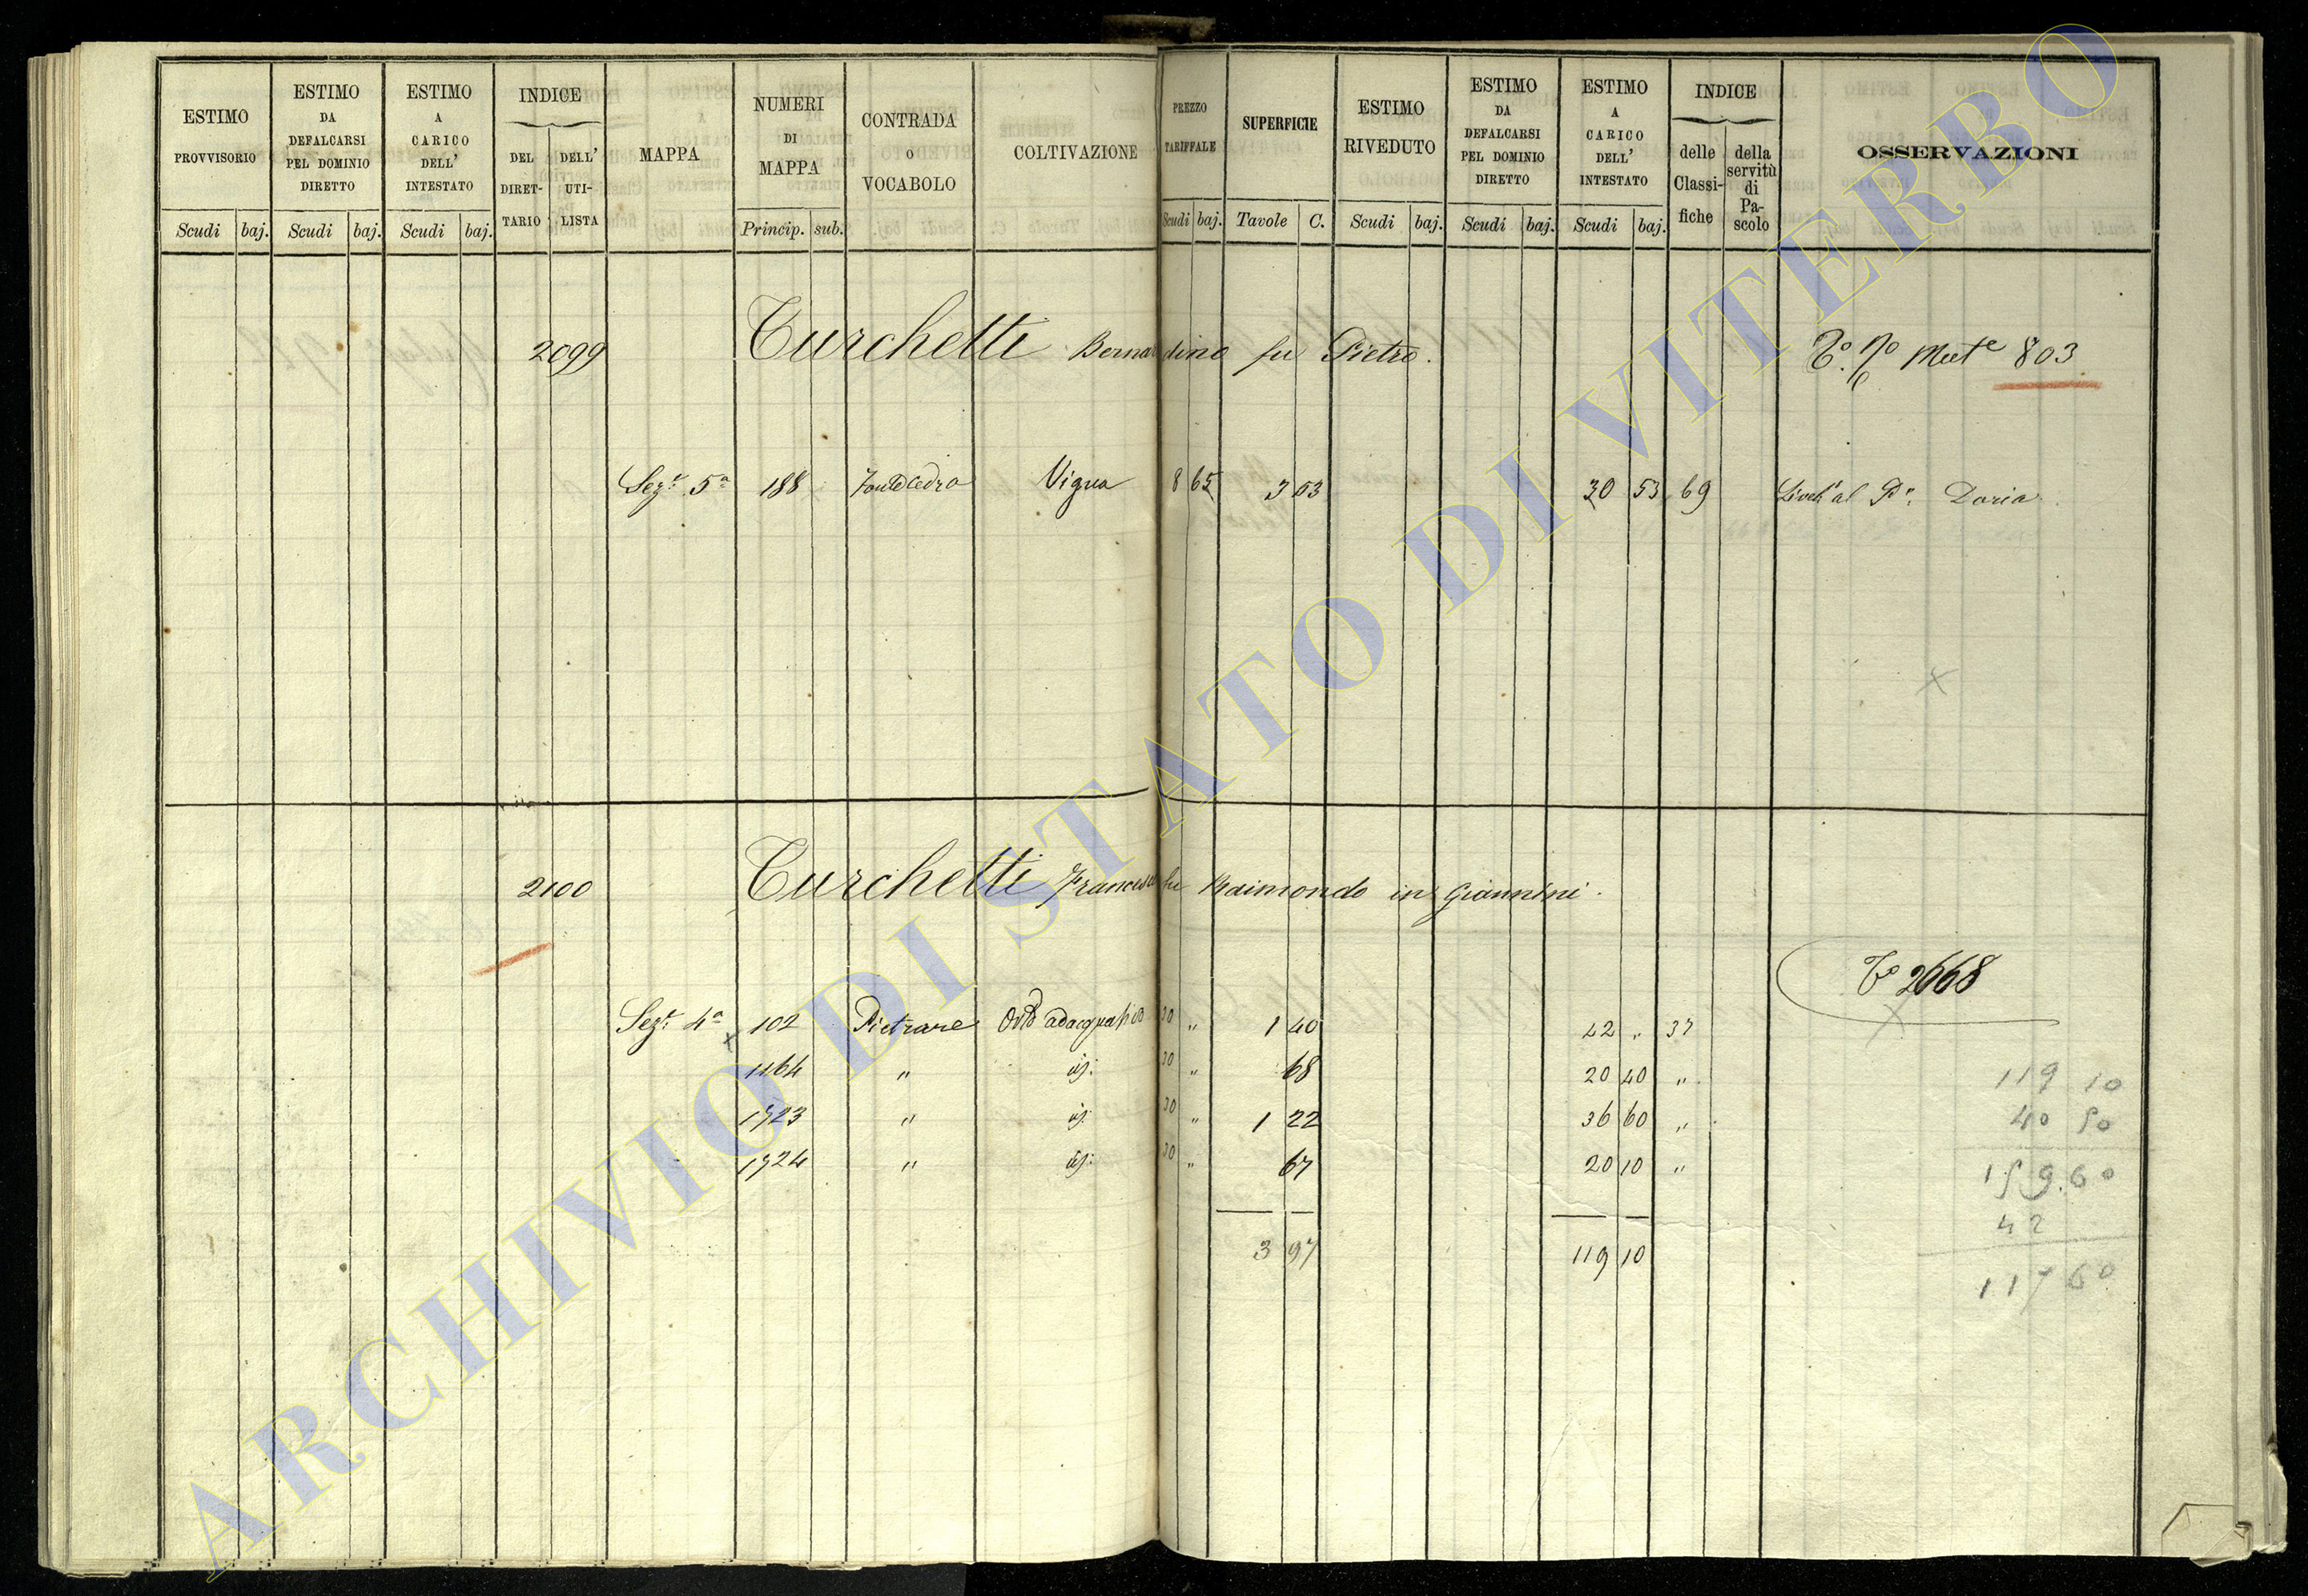 ESTIMO PROVVISORIO Scudi baj.
ESTIMO DA DEFALCARSI PEL DOMINIO DIRETTO Scudi baj.
ESTIMO A CARICO DELL' INTESTATO Scudi baj.
INDICE DEL DIRET-TARIO DELL' UTI-LISTA
MAPPA
NUMERI DI MAPPA Princip. sub.
CONTRADA O VOCABOLO
COLTIVAZIONE
PREZZO TARIFFALE Scudi baj.
SUPERFICIE Tavole C.
ESTIMO RIVEDUTO Scudi baj.
ESTIMO DA DEFALCARSI PEL DOMINIO DIRETTO Scudi baj.
ESTIMO A CARICO DELL' INTESTATO Scudi baj.
INDICE delle Classi-fiche della servitù di Pa-scolo
OSSERVAZIONI
2099 Turchetti Bernardino fu Pietro. 803
Sez.e 5a 188 Vigna 8 65 3 53 30 53 69 al Pe. Doria
2100 Turchetti Francesca fu Raimondo in Giannini.
To 2668
Sez.e 4a 102 Pietrare Orto adacquativo 30 " 1 40 42 " 37
1164 " id: 30 " 68 20 40 "
1723 " id: 30 " 1 22 36 60 "
1724 " id: 30 " 67 20 10 "
3 97 119 10
119 10
40 50
159.60
42
117 60
ARCHIVIO DI STATO DI VITERBO